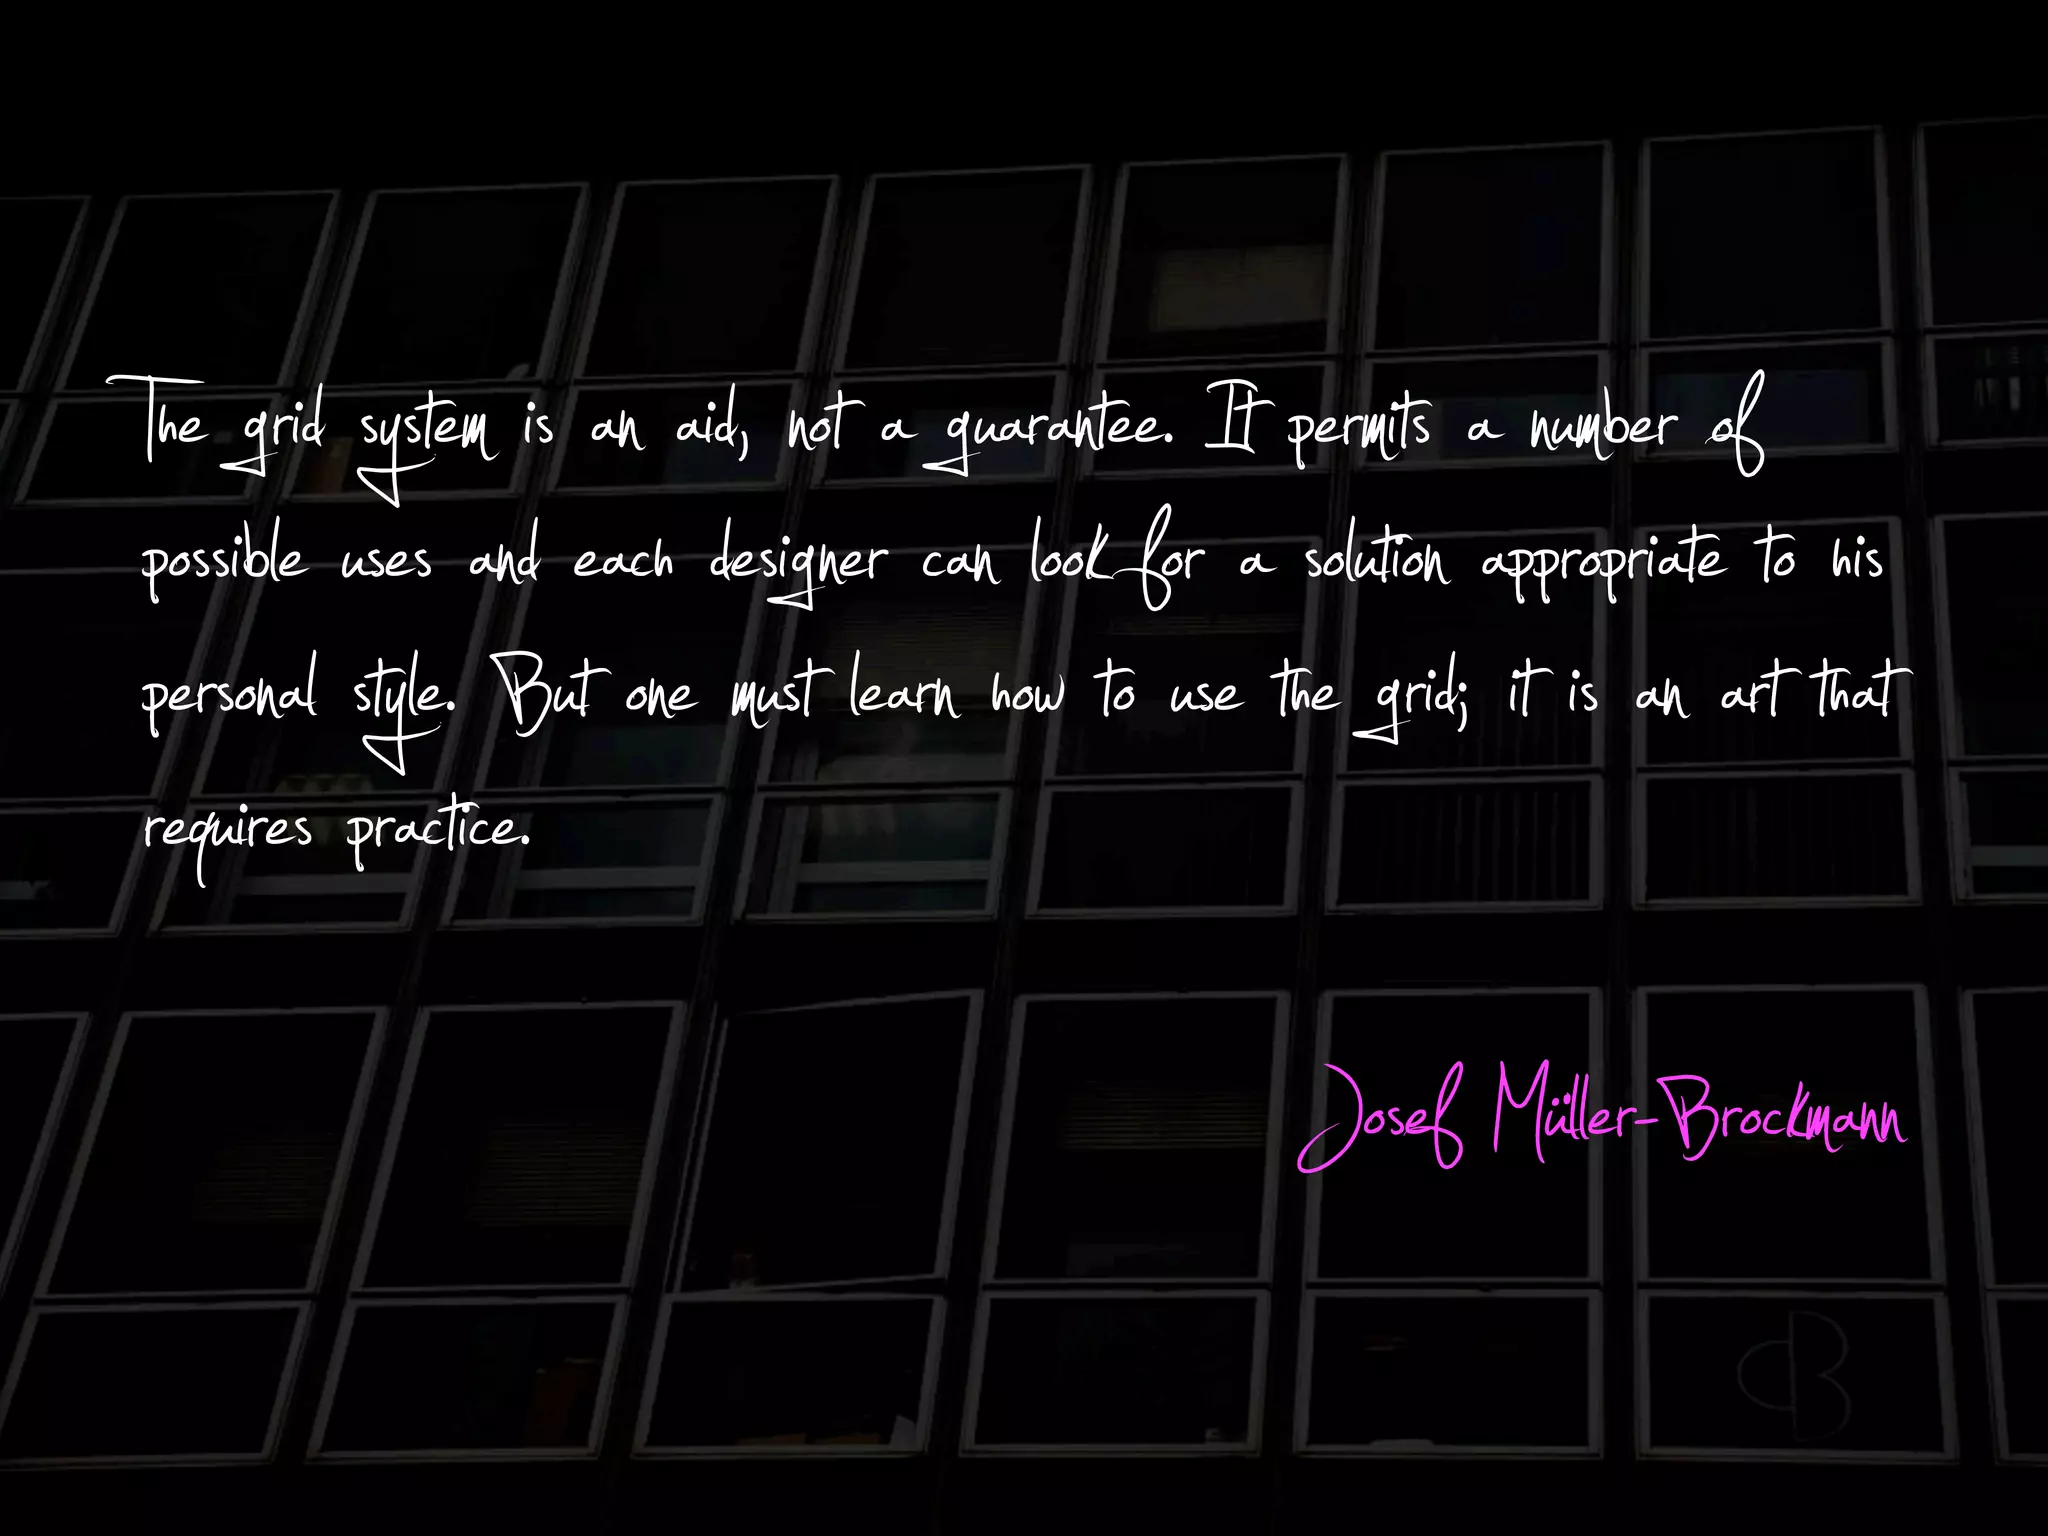 The grid system is an aid, not a guarantee. It permits a number of
possible uses and each designer can look for a solution appropriate to his
personal style. But one must learn how to use the grid; it is an art that
requires practice.
Josef Müller-Brockmann